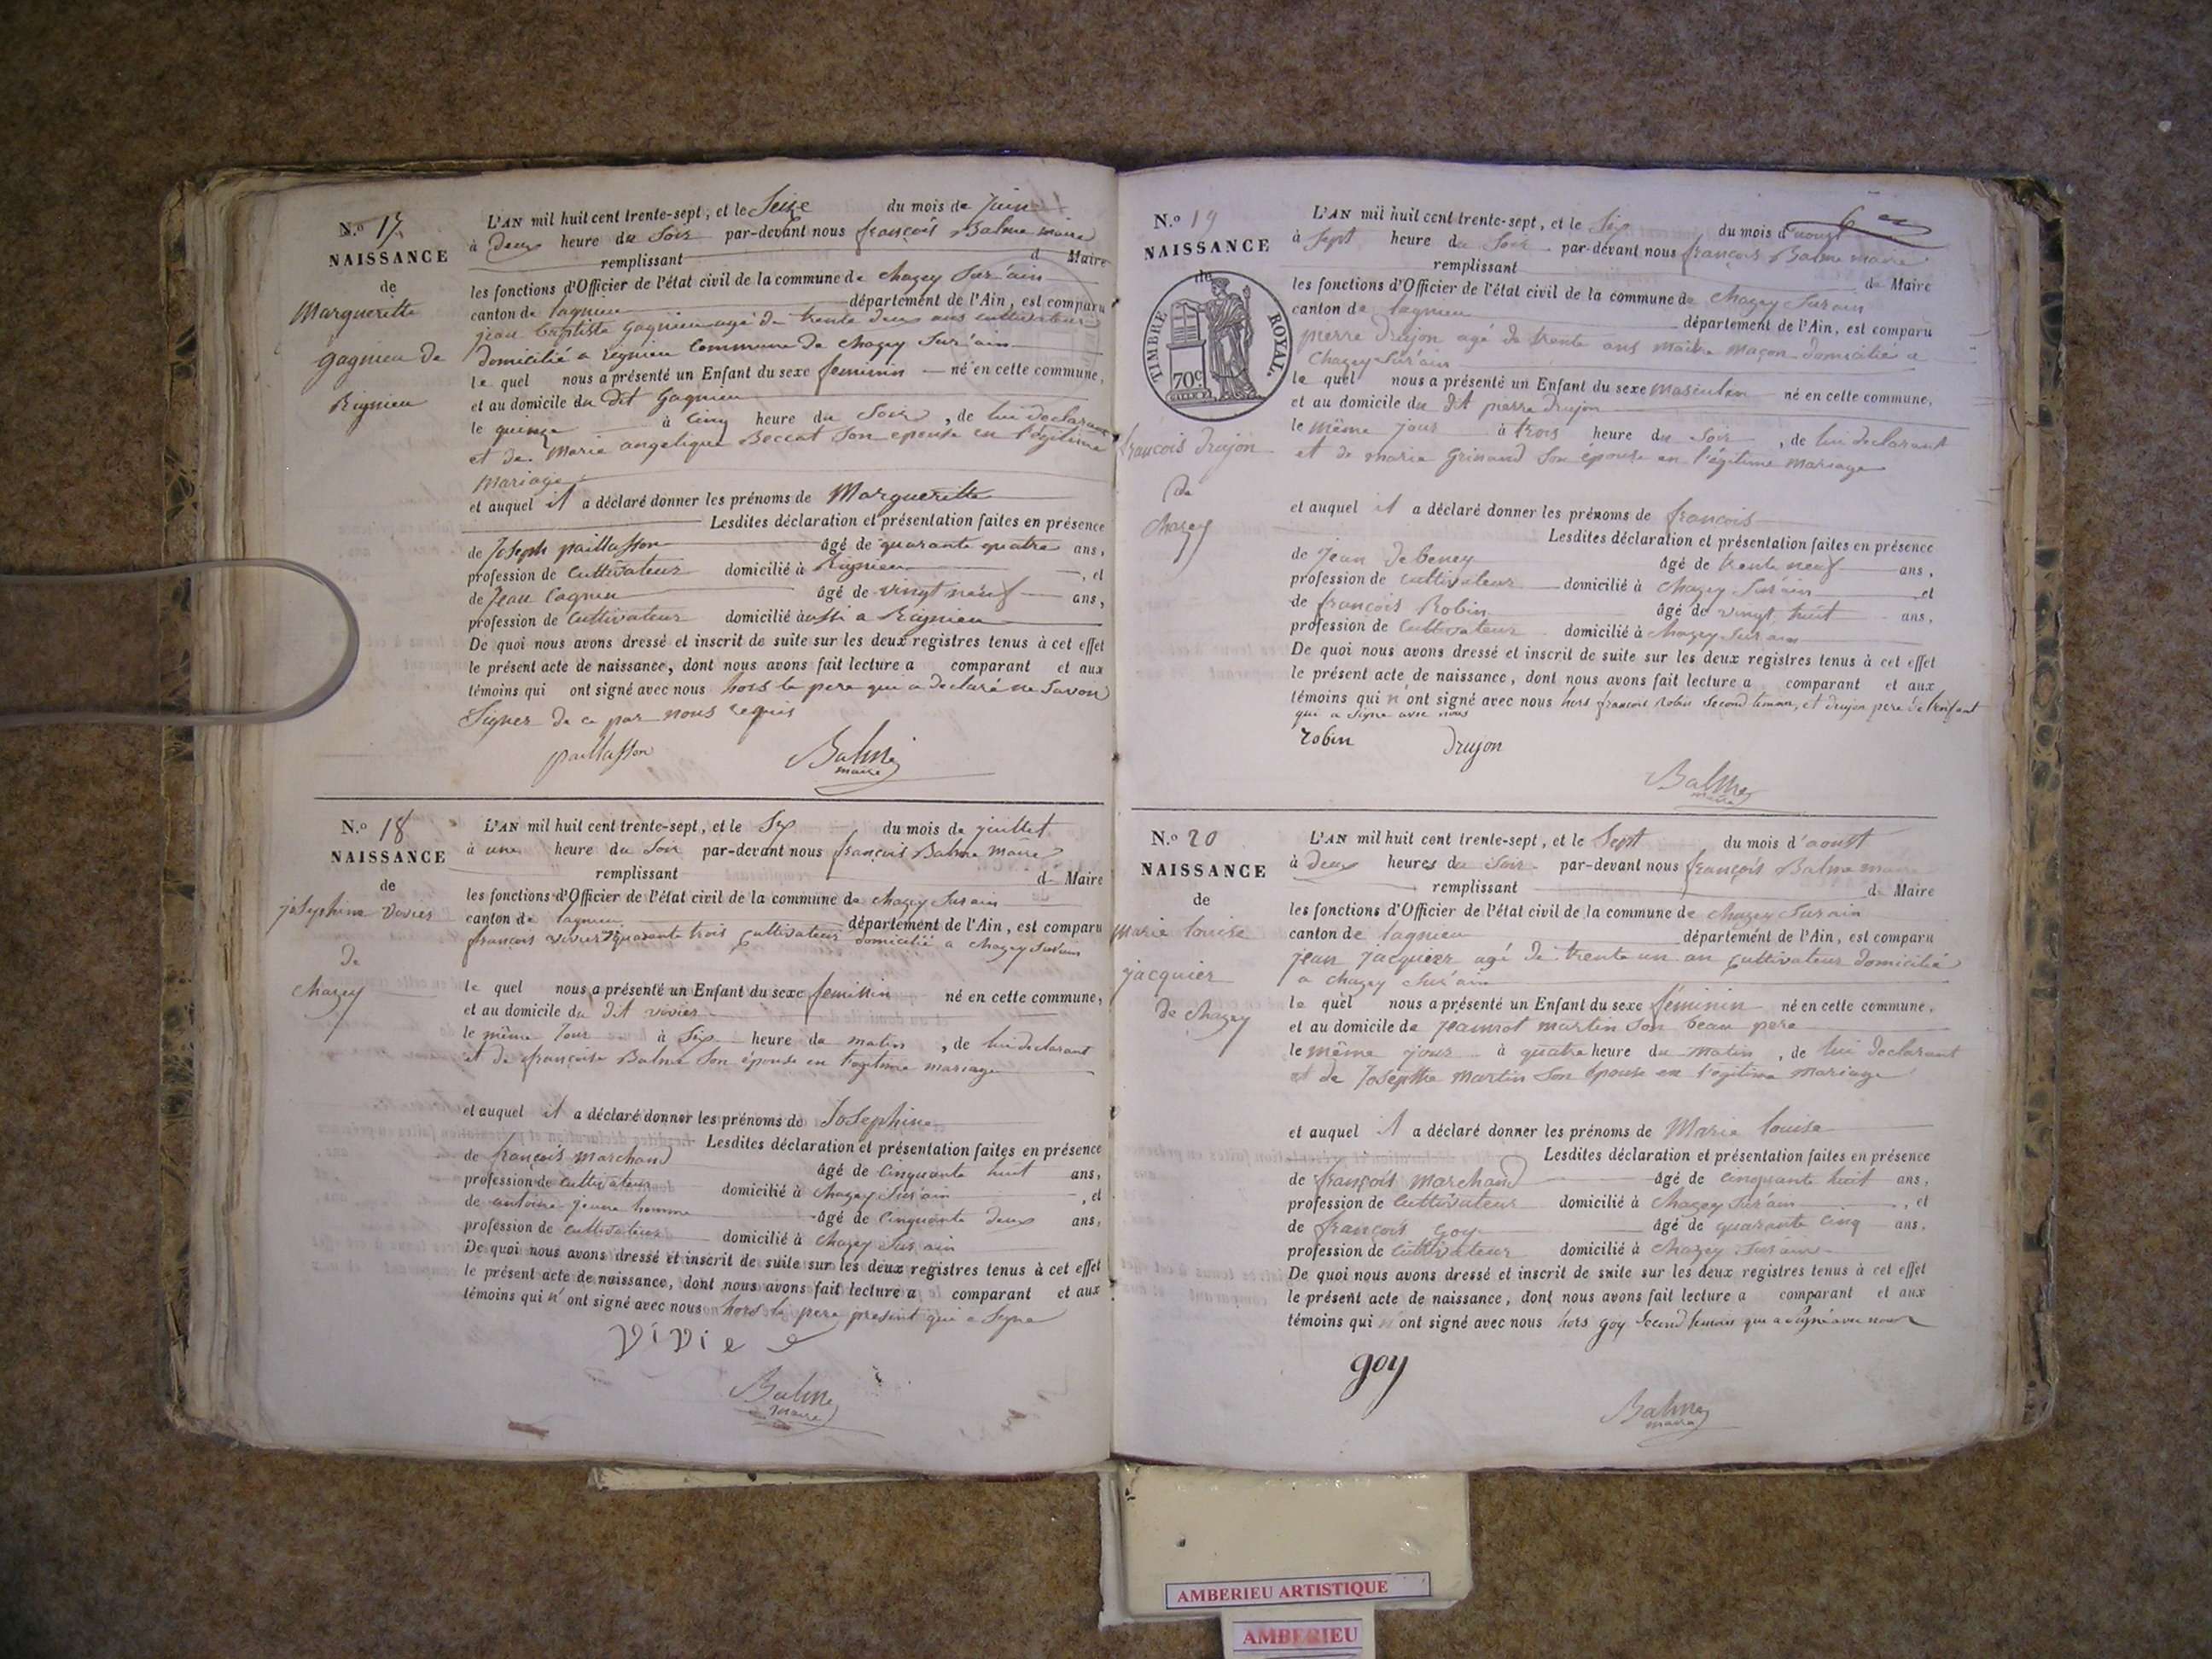 N.o 17
NAISSANCE
de
Margueritte
gagnieu de
Rignieu
L'AN mil huit cent trente-sept, et le Seize du mois de Juin
à deux heure du Soir par-devant nous françois Balme maire
remplissant d Maire
les fonctions d'Officier de l'état civil de la commune de chazey Sur'ain
canton de lagnieu département de l'Ain, est comparu
jean baptiste gagnieu agé de trente deux ans cultivateur
domicilié a rignieu commune de chazey Sur'ain
le quel nous a présenté un Enfant du sexe feminin né en cette commune,
et au domicile du dit gagnieu
le quinze à cinq heure du Soir, de lui declarant
et de Marie angelique Beccat Son epouse en l'égitime
mariage
et auquel il a déclaré donner les prénoms de Margueritte
Lesdites déclaration et présentation faites en présence
de Joseph paillasson âgé de quarante quatre ans,
profession de Cultivateur domicilié à Rignieu, et
de Jean Cagnieu âgé de vingt neuf ans,
profession de Cultivateur domicilié àussi a Rignieu
De quoi nous avons dressé et inscrit de suite sur les deux registres tenus à cet effet
le présent acte de naissance, dont nous avons fait lecture a comparant et aux
témoins qui ont signé avec nous hors le pere qui a declaré ne Savoir
Signer de ce par nous requis
paillasson Balme
maire
N.o 18
NAISSANCE
de
joSephine vivier
de
chazey
L'AN mil huit cent trente-sept, et le Six du mois de juillet
à une heure du Soir par-devant nous françois Balme Maire
remplissant d Maire
les fonctions d'Officier de l'état civil de la commune de chazey Sur ain
canton de lagnieu département de l'Ain, est comparu
francois vivier quarante trois cultivateur domicilié a chazey Sur'ain
le quel nous a présenté un Enfant du sexe feminin né en cette commune,
et au domicile du dit vivier
le même Jour à Six heure du matin, de lui declarant
et de françoise Balme Son épouse en l'egitime mariage
et auquel il a déclaré donner les prénoms de JoSephine
Lesdites déclaration et présentation faites en présence
de françois Marchand âgé de Cinquante huit ans,
profession de cultivateur domicilié à chazey Sur'ain, et
de antoine jeune homme âgé de Cinquante deux ans,
profession de cultivateur domicilié à chazey Sur ain
De quoi nous avons dressé et inscrit de suite sur les deux registres tenus à cet effet
le présent acte de naissance, dont nous avons fait lecture a comparant et aux
témoins qui n' ont signé avec nous hors le pere present qui a Signe
ViVie
Balme
maire
N.o 19
NAISSANCE
de
TIMBRE ROYAL.
70c
francois Drujon
de
chazey
L'AN mil huit cent trente-sept, et le Six du mois d'aoust
à Sept heure du Soir par-devant nous françois Balme maire
remplissant d Maire
les fonctions d'Officier de l'état civil de la commune de Chazey Sur ain
canton de lagnieu département de l'Ain, est comparu
pierre Drujon agé de trente ans Maitre Maçon domicilié a
Chazey Sur'ain
le quel nous a présenté un Enfant du sexe masculin né en cette commune,
et au domicile du dit pierre drujon
le même jour à trois heure du Soir, de lui declarant
et de marie Grinand Son épouse en l'égitime mariage
et auquel il a déclaré donner les prénoms de francois
Lesdites déclaration et présentation faites en présence
de Jean Debeney âgé de trente neuf ans,
profession de cultivateur domicilié à Chazey Sur'ain et
de françois Robin âgé de vingt huit ans,
profession de Cultivateur domicilié à chazey Sur ain
De quoi nous avons dressé et inscrit de suite sur les deux registres tenus à cet effet
le présent acte de naissance, dont nous avons fait lecture a comparant et aux
témoins qui n' ont signé avec nous hors françois robin Second temoin, et drujon pere de l'enfant
qui a Signe avec nous
robin Drujon
Balme
maire
N.o 20
NAISSANCE
de
Marie louise
jacquier
de chazey
L'AN mil huit cent trente-sept, et le Sept du mois d'aoust
à deux heures du Soir par-devant nous françois Balme
remplissant d Maire
les fonctions d'Officier de l'état civil de la commune de chazey Sur ain
canton de lagnieu département de l'Ain, est comparu
jean jacquier agé de trente un an cultivateur domicilié
a chazey Sur'ain
le quel nous a présenté un Enfant du sexe féminin né en cette commune,
et au domicile de jeanirot martin Son beau pere
le même jour à quatre heure du matin, de lui declarant
et de Josepthe Martin Son épouse en l'égitime mariage
et auquel il a déclaré donner les prénoms de Marie louise
Lesdites déclaration et présentation faites en présence
de françois Marchand âgé de cinquante huit ans,
profession de Cultivateur domicilié à Chazey Sur'ain, et
de françois goy âgé de quarante cinq ans,
profession de cultivateur domicilié à chazey Sur'ain
De quoi nous avons dressé et inscrit de suite sur les deux registres tenus à cet effet
le présent acte de naissance, dont nous avons fait lecture a comparant et aux
témoins qui n' ont signé avec nous hors goy Second temoin qui a Signé avec nous
goy
Balme
maire
AMBERIEU ARTISTIQUE
AMBERIEU